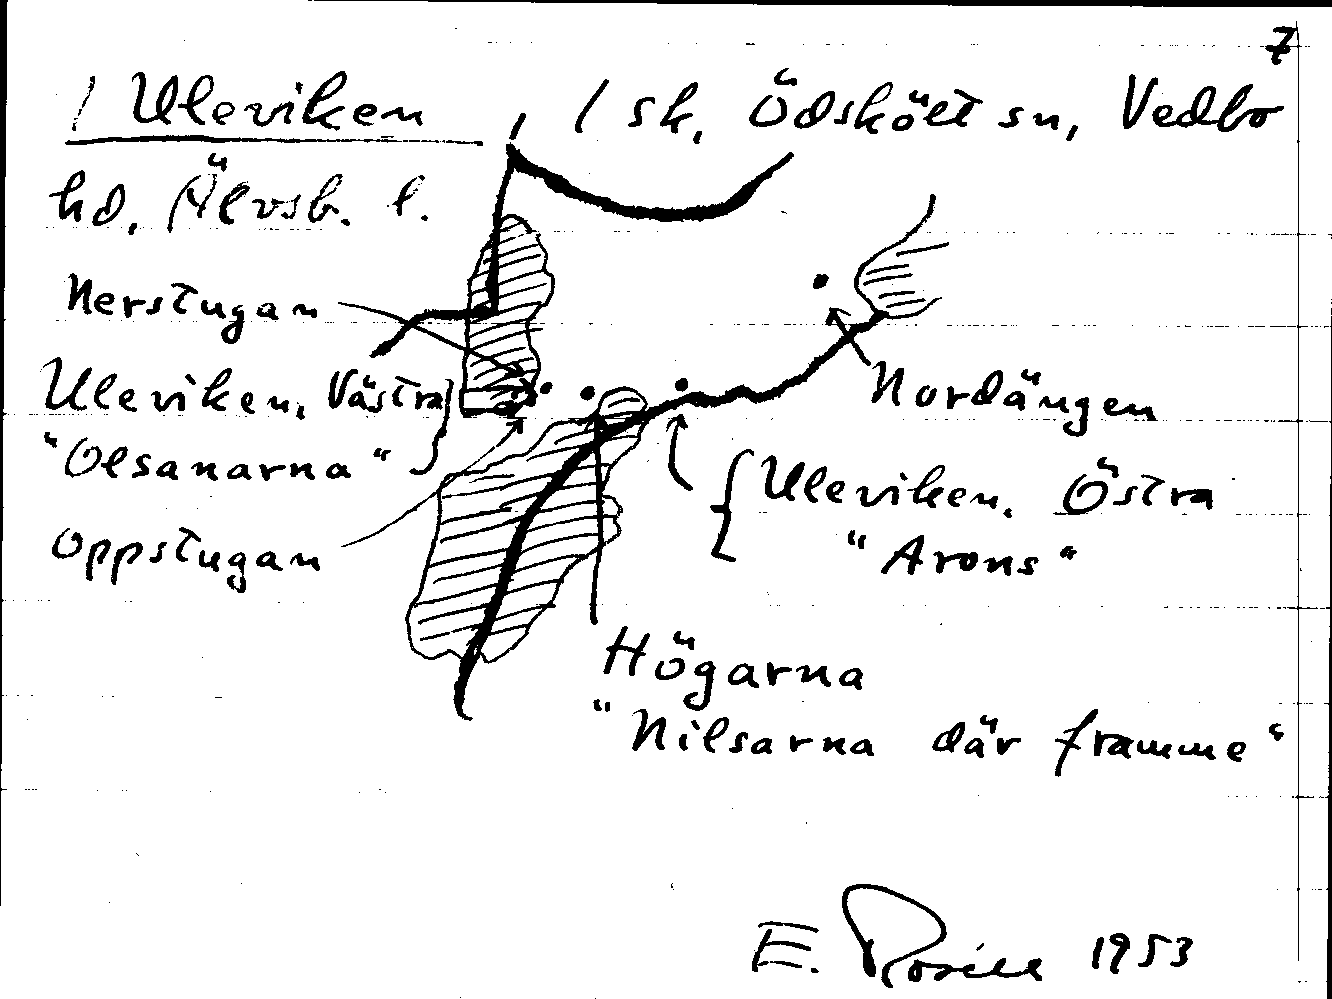 7
/ Uleviken, / sk, Ödskölt sn, Vedbo
hd, Älvsb. l.
Nerstugan
Uleviken, Västra
"Olsanarna"
Oppstugan
Nordängen
Uleviken, Östra
"Arons"
Högarna
"Nilsarna där framme"
E. 1953